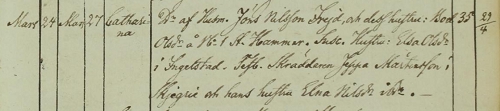 Mars 24 Mars 27 Catharina Dr. af Husm. Jöns Nilsson Fröjd, och dess hustru: Bod. 35 29/4
Olsdr. å No 1 A. Hammar. Susc. Hustru: Elsa Olsdr.
i Ingelstad. Test. Skräddaren Jeppa Mårtensson i
och hans hustru Elna Nilsdr. ibdm. —